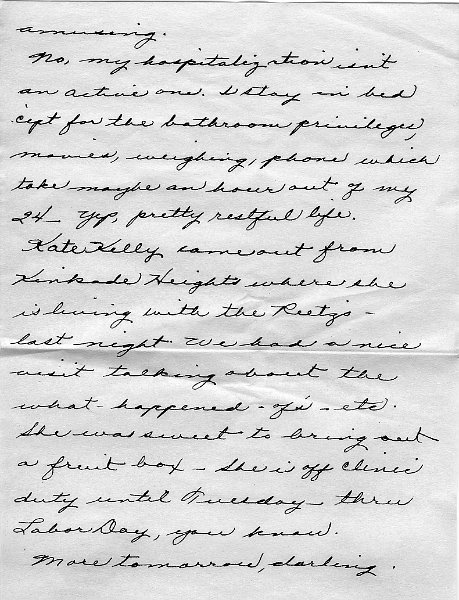 amusing.
No, my hospitalization isn't
an active one. I stay in bed
'cept for the bathroom privileges,
movies, weighing, phone which
take maybe an hour out of my
24 - Yep, pretty restful life.
Kate Kelly came out from
Kinkade Heights where she
is living with the Reetzs -
last night. We had a nice
visit talking about the
what - happened - of's - etc.
She was sweet to bring out
a fruit box - She is off clinic
duty until Tuesday - thru
Labor Day, you know.
More tomorrow, darling.